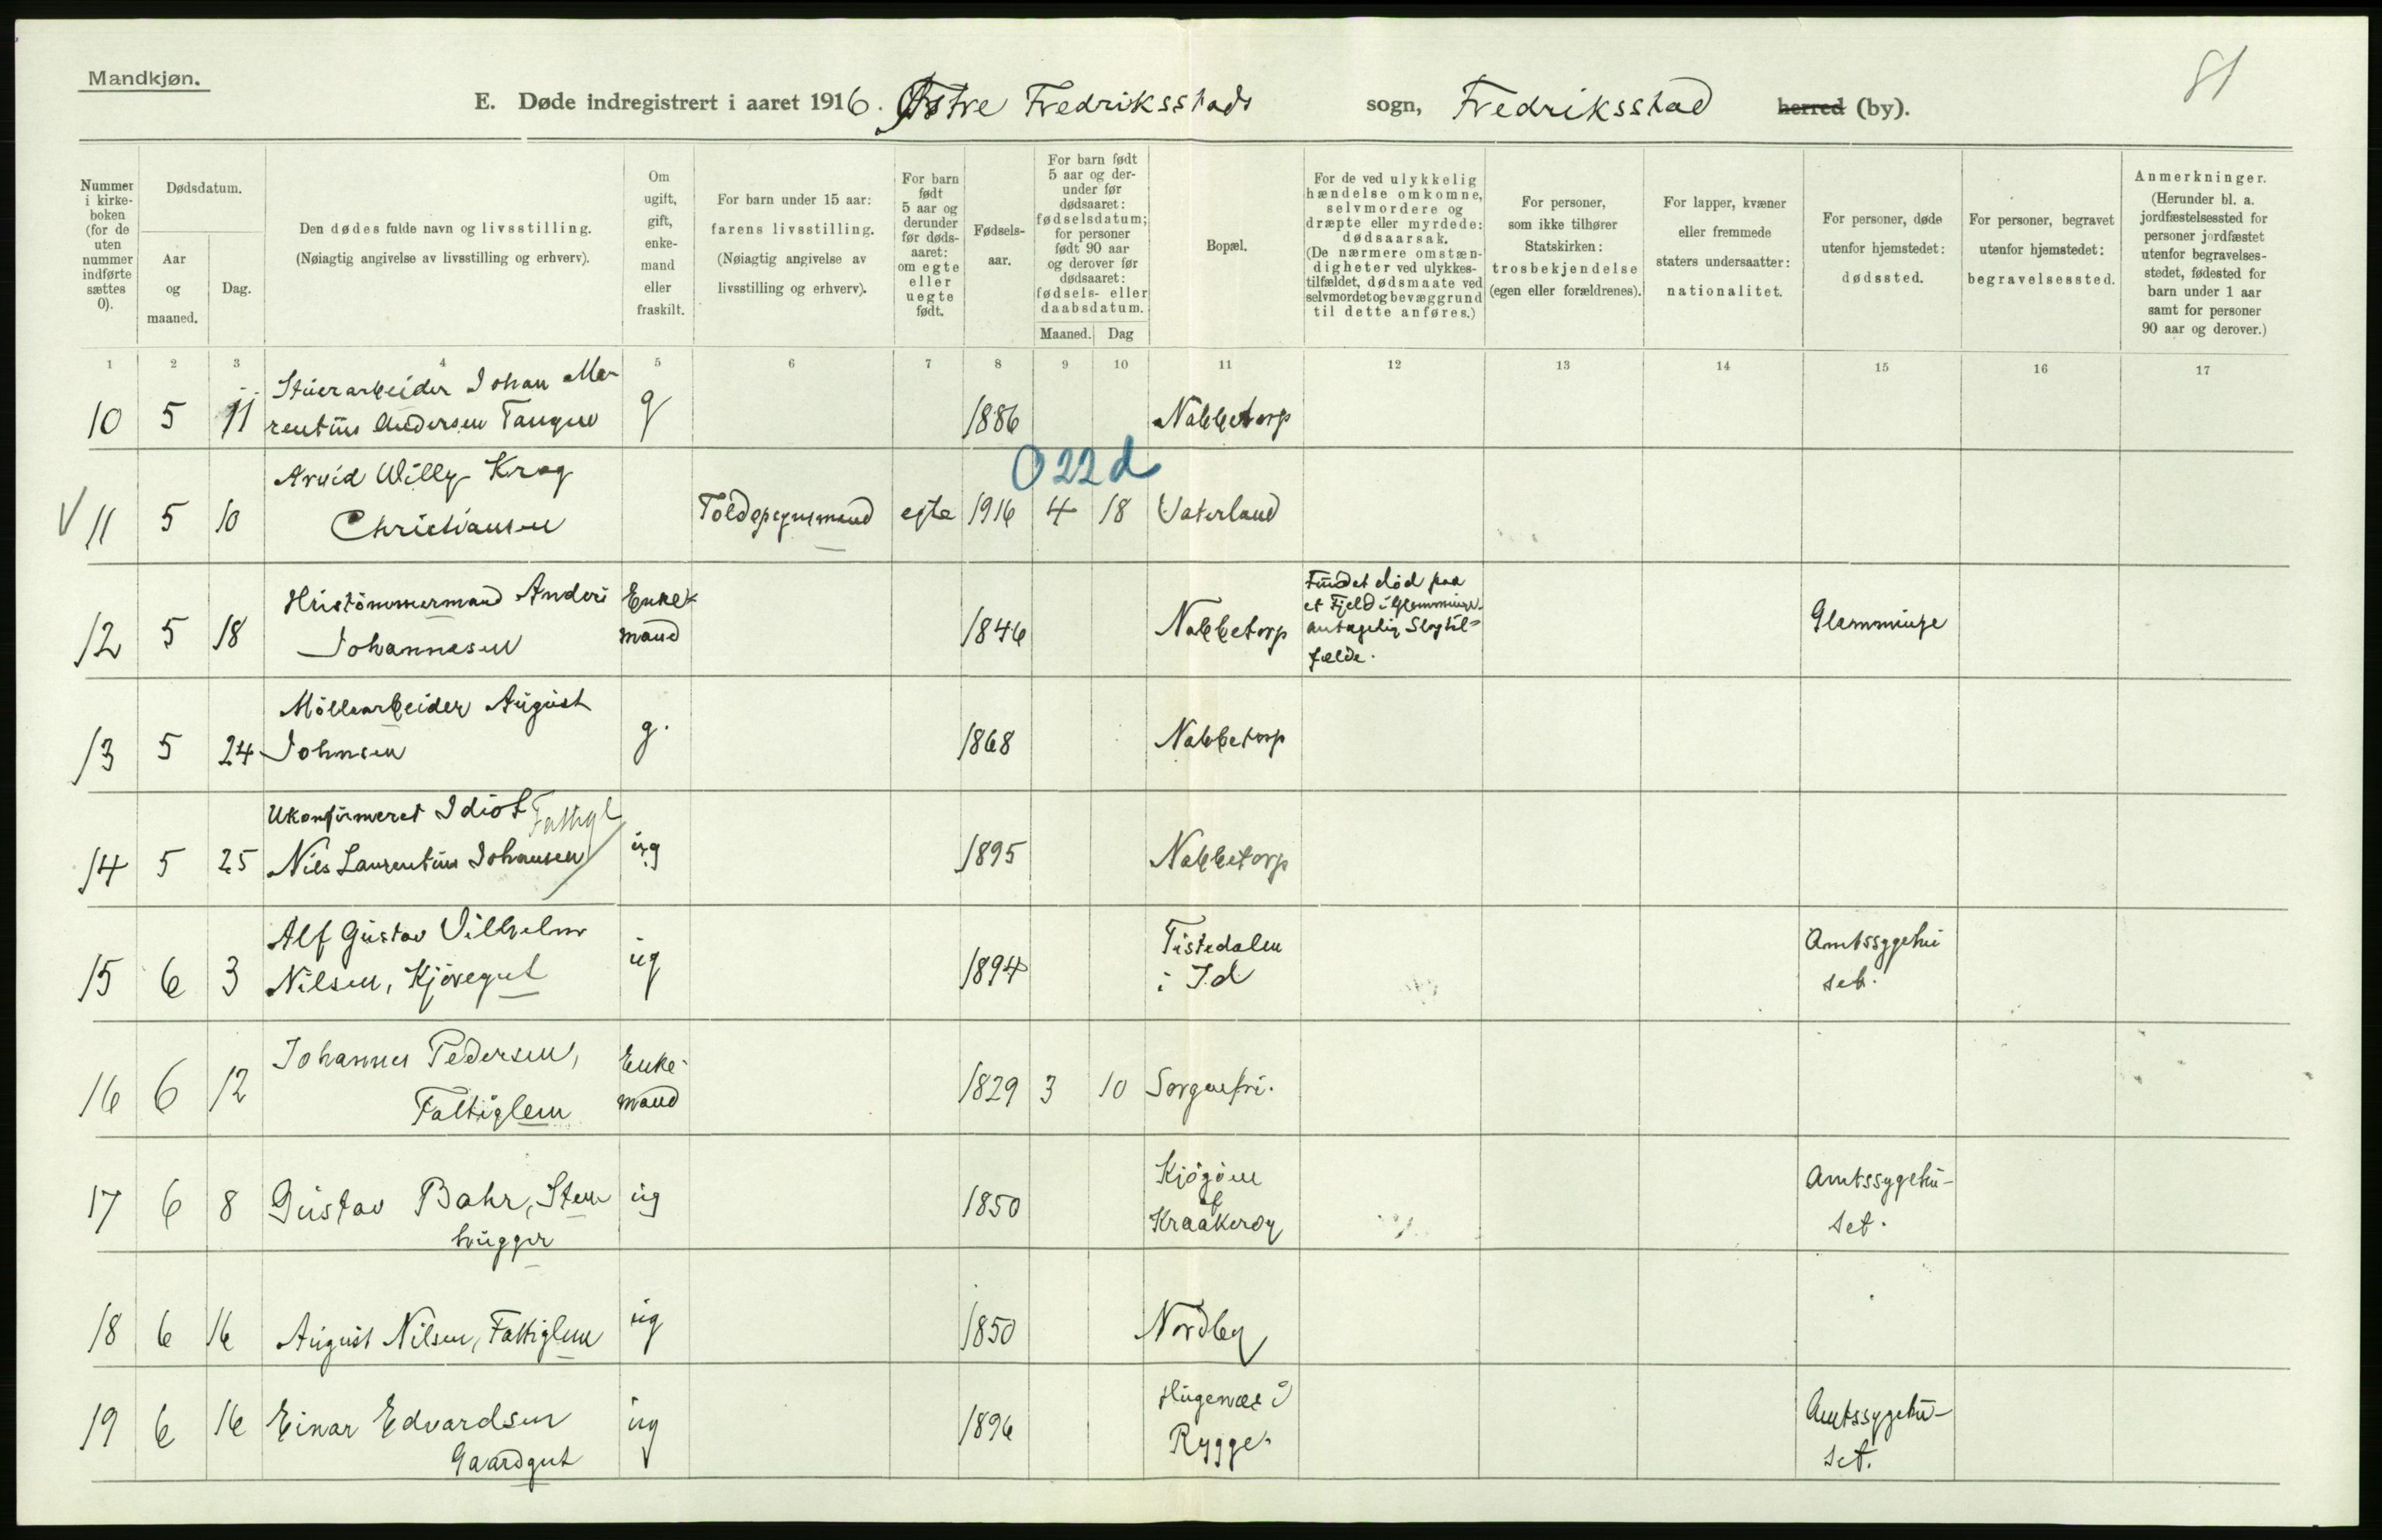 Mandkjøn.
81
E. Døde indregistrert i aaret 1916. Østre Fredriksstads sogn, Fredriksstad herred (by).
Nummer i kirkeboken (for de uten nummer indførte sættes 0).
Dødsdatum.
Aar og maaned.
Dag.
Den dødes fulde navn og livsstilling.
(Nøiagtig angivelse av livsstilling og erhverv).
Om ugift, gift, enkemand eller fraskilt.
For barn under 15 aar: farens livsstilling.
(Nøiagtig angivelse av livsstilling og erhverv).
For barn født 5 aar og derunder før dødsaaret: om egte eller uegte født.
Fødselsaar.
For barn født 5 aar og derunder før dødsaaret: fødselsdatum; for personer født 90 aar og derover før dødsaaret: fødsels- eller daabsdatum.
Maaned. Dag
Bopæl.
For de ved ulykkelig hændelse omkomne, selvmordere og dræpte eller myrdede: dødsaarsak.
(De nærmere omstændigheter ved ulykkestilfældet, dødsmaate ved selvmordet og bevæggrund til dette anføres.)
For personer, som ikke tilhører Statskirken: trosbekjendelse (egen eller forældrenes).
For lapper, kvæner eller fremmede staters undersaatter: nationalitet.
For personer, døde utenfor hjemstedet: dødssted.
For personer, begravet utenfor hjemstedet: begravelsessted.
Anmerkninger.
(Herunder bl. a. jordfæstelsessted for personer jordfæstet utenfor begravelsesstedet, fødested for barn under 1 aar samt for personer 90 aar og derover.)
1 2 3 4 5 6 7 8 9 10 11 12 13 14 15 16 17
10 5 11 Stuerarbeider Johan Ma-
rentius Andersen Tangen g 1886 Nabbetorp
O 22 d
V 11 5 10 Arvid Willy Krog
Christiansen Toldopsynsmand egte 1916 4 18 Vaterland
12 5 18 Hustömmermand Anders
Johannesen Enke-
mand 1846 Nabbetorp Fundet död paa
et Fjeld i Glemminge.
antagelig Slagtil-
fælde. Glemminge
13 5 24 Möllearbeider August
Johnsen g. 1868 Nabbetorp
14 5 25 Ukonfirmeret Idiot Fattigl
Nils Laurentius Johansen ug 1895 Nabbetorp
15 6 3 Alf Gustav Vilhelm
Nilsen, Kjøregut ug 1894 Tistedalen
i Id Amtssygehu
set.
16 6 12 Johannes Pedersen,
Fattiglem Enke-
mand 1829 3 10 Sorgenfri.
17 6 8 Gustav Bahr, Sten
hugger ug 1850 Kjøgøen
af
Kraakerøy Amtssygehu-
set.
18 6 16 August Nilsen, Fattiglem ug 1850 Nordby
19 6 16 Einar Edvardsen
Gaardgut ug 1896 Hugenæs i
Rygge. Amtssygehu-
set.